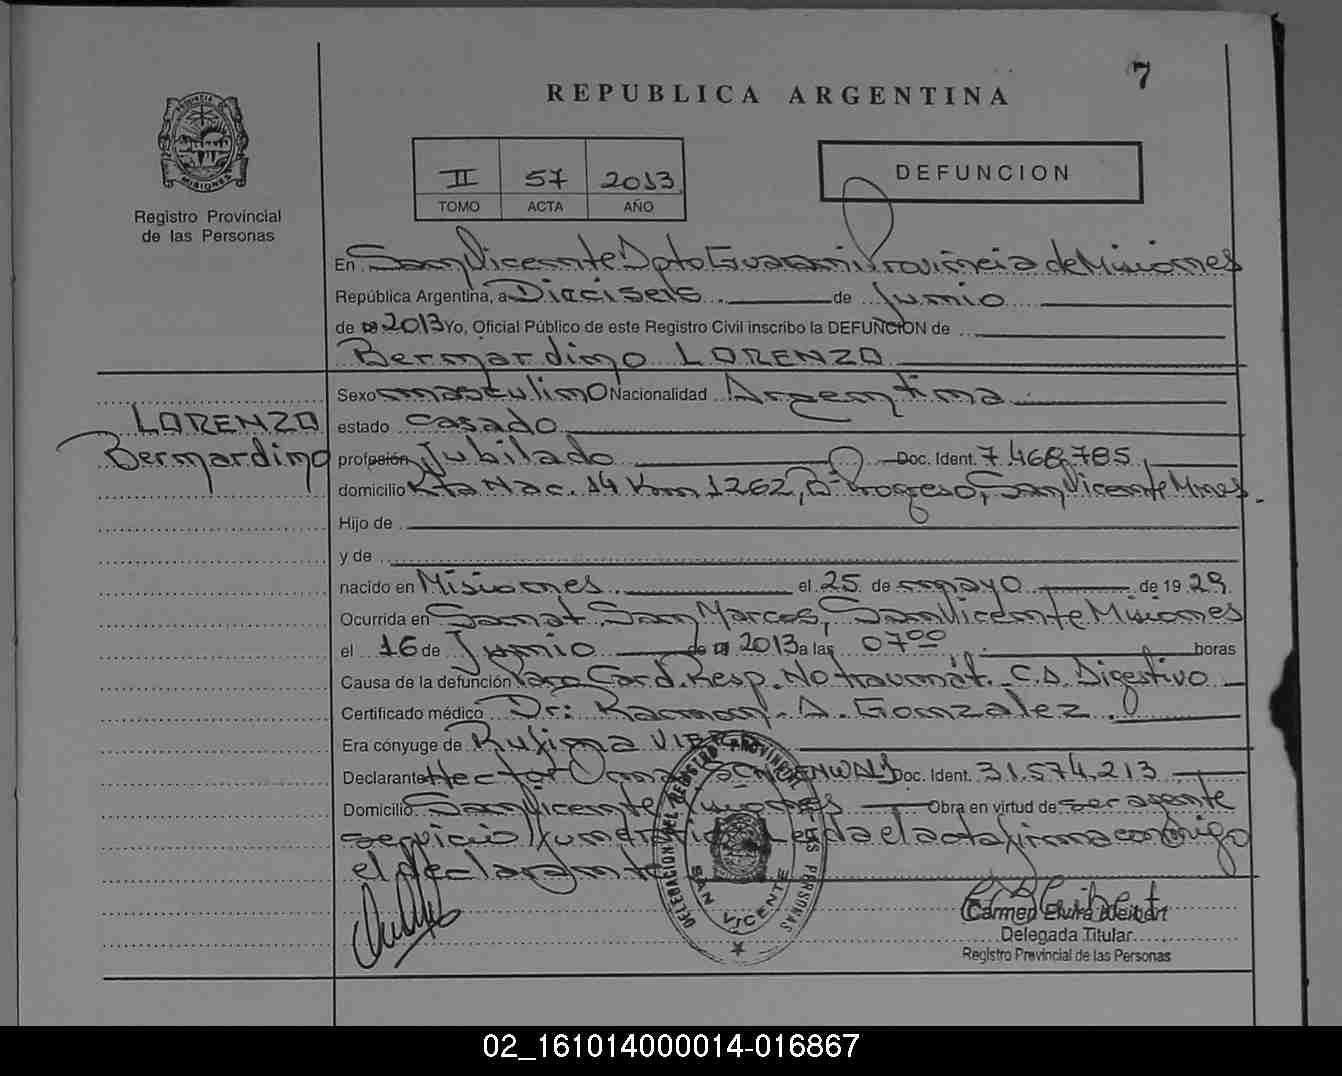 7
REPUBLICA ARGENTINA
PROVINCIA D
MISIONES
II 57 2013
TOMO ACTA AÑO
DEFUNCION
Registro Provincial
de las Personas
En San Vicente Dpto Guarani Provincia de Misiones
República Argentina, a Dieciseis de Junio
de 2013 Yo, Oficial Público de este Registro Civil inscribo la DEFUNCION de
Bernardino LORENZO
Sexo masculino Nacionalidad Argentina
LORENZO
Bernardino
estado casado
profesión Jubilado Doc. Ident. 7.468.785
domicilio Rta Nac. 14 Km 1262, Bº Progreso, San Vicente Mnes.
Hijo de
y de
nacido en Misiones el 25 de mayo de 1929
Ocurrida en Sanat. San Marcos, San Vicente Misiones
el 16 de Junio de 2013 a las 07⁰⁰ horas
Causa de la defunción Paro Card. Resp. No traumát. C.A. Digestivo
Certificado médico Dr: Ramon A. Gonzalez
Era cónyuge de Rufina
Declarante Hector Doc. Ident. 31.574.213
Domicilio San Vicente Misiones Obra en virtud de ser agente
servicio Leida el acta firma conmigo
el declarante
DELEGACION DEL REGISTRO PROVINCIAL DE LAS PERSONAS
SAN VICENTE
Carmen Elvira
Delegada Titular
Registro Provincial de las Personas
02_161014000014-016867